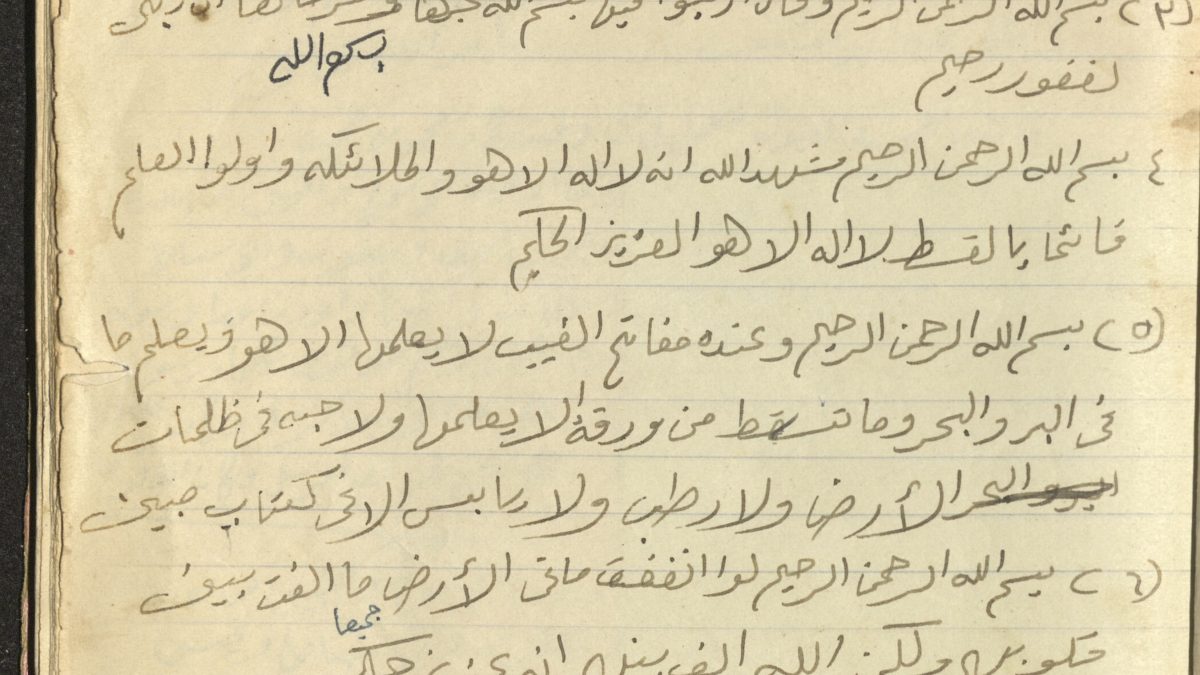 (٣) بسم الله الرحمن الرحيم وقال اركبوا فيها بسم الله مجراها ومرساها ان ربي
لغفور رحيم
بسم الله
٤ بسم الله الرحمن الرحيم شهد الله انه لا اله الا هو والملائكه واولوا العلم
قائما بالقسط لا اله الا هو العزيز الحكيم
(٥) بسم الله الرحمن الرحيم وعنده مفاتح الغيب لا يعلمها الا هو ويعلم ما
فى البر والبحر وما تسقط من ورقة الا يعلمها ولا حبه فى ظلمات
البحر الأرض ولا رطب ولا يابس الا فى كتاب مبين
(٦) بسم الله الرحمن الرحيم لوا انفقت مافى الأرض ما الفت بين
جميعا
قلوبهم ولكن الله الف بينهم انه عزيز حكيم